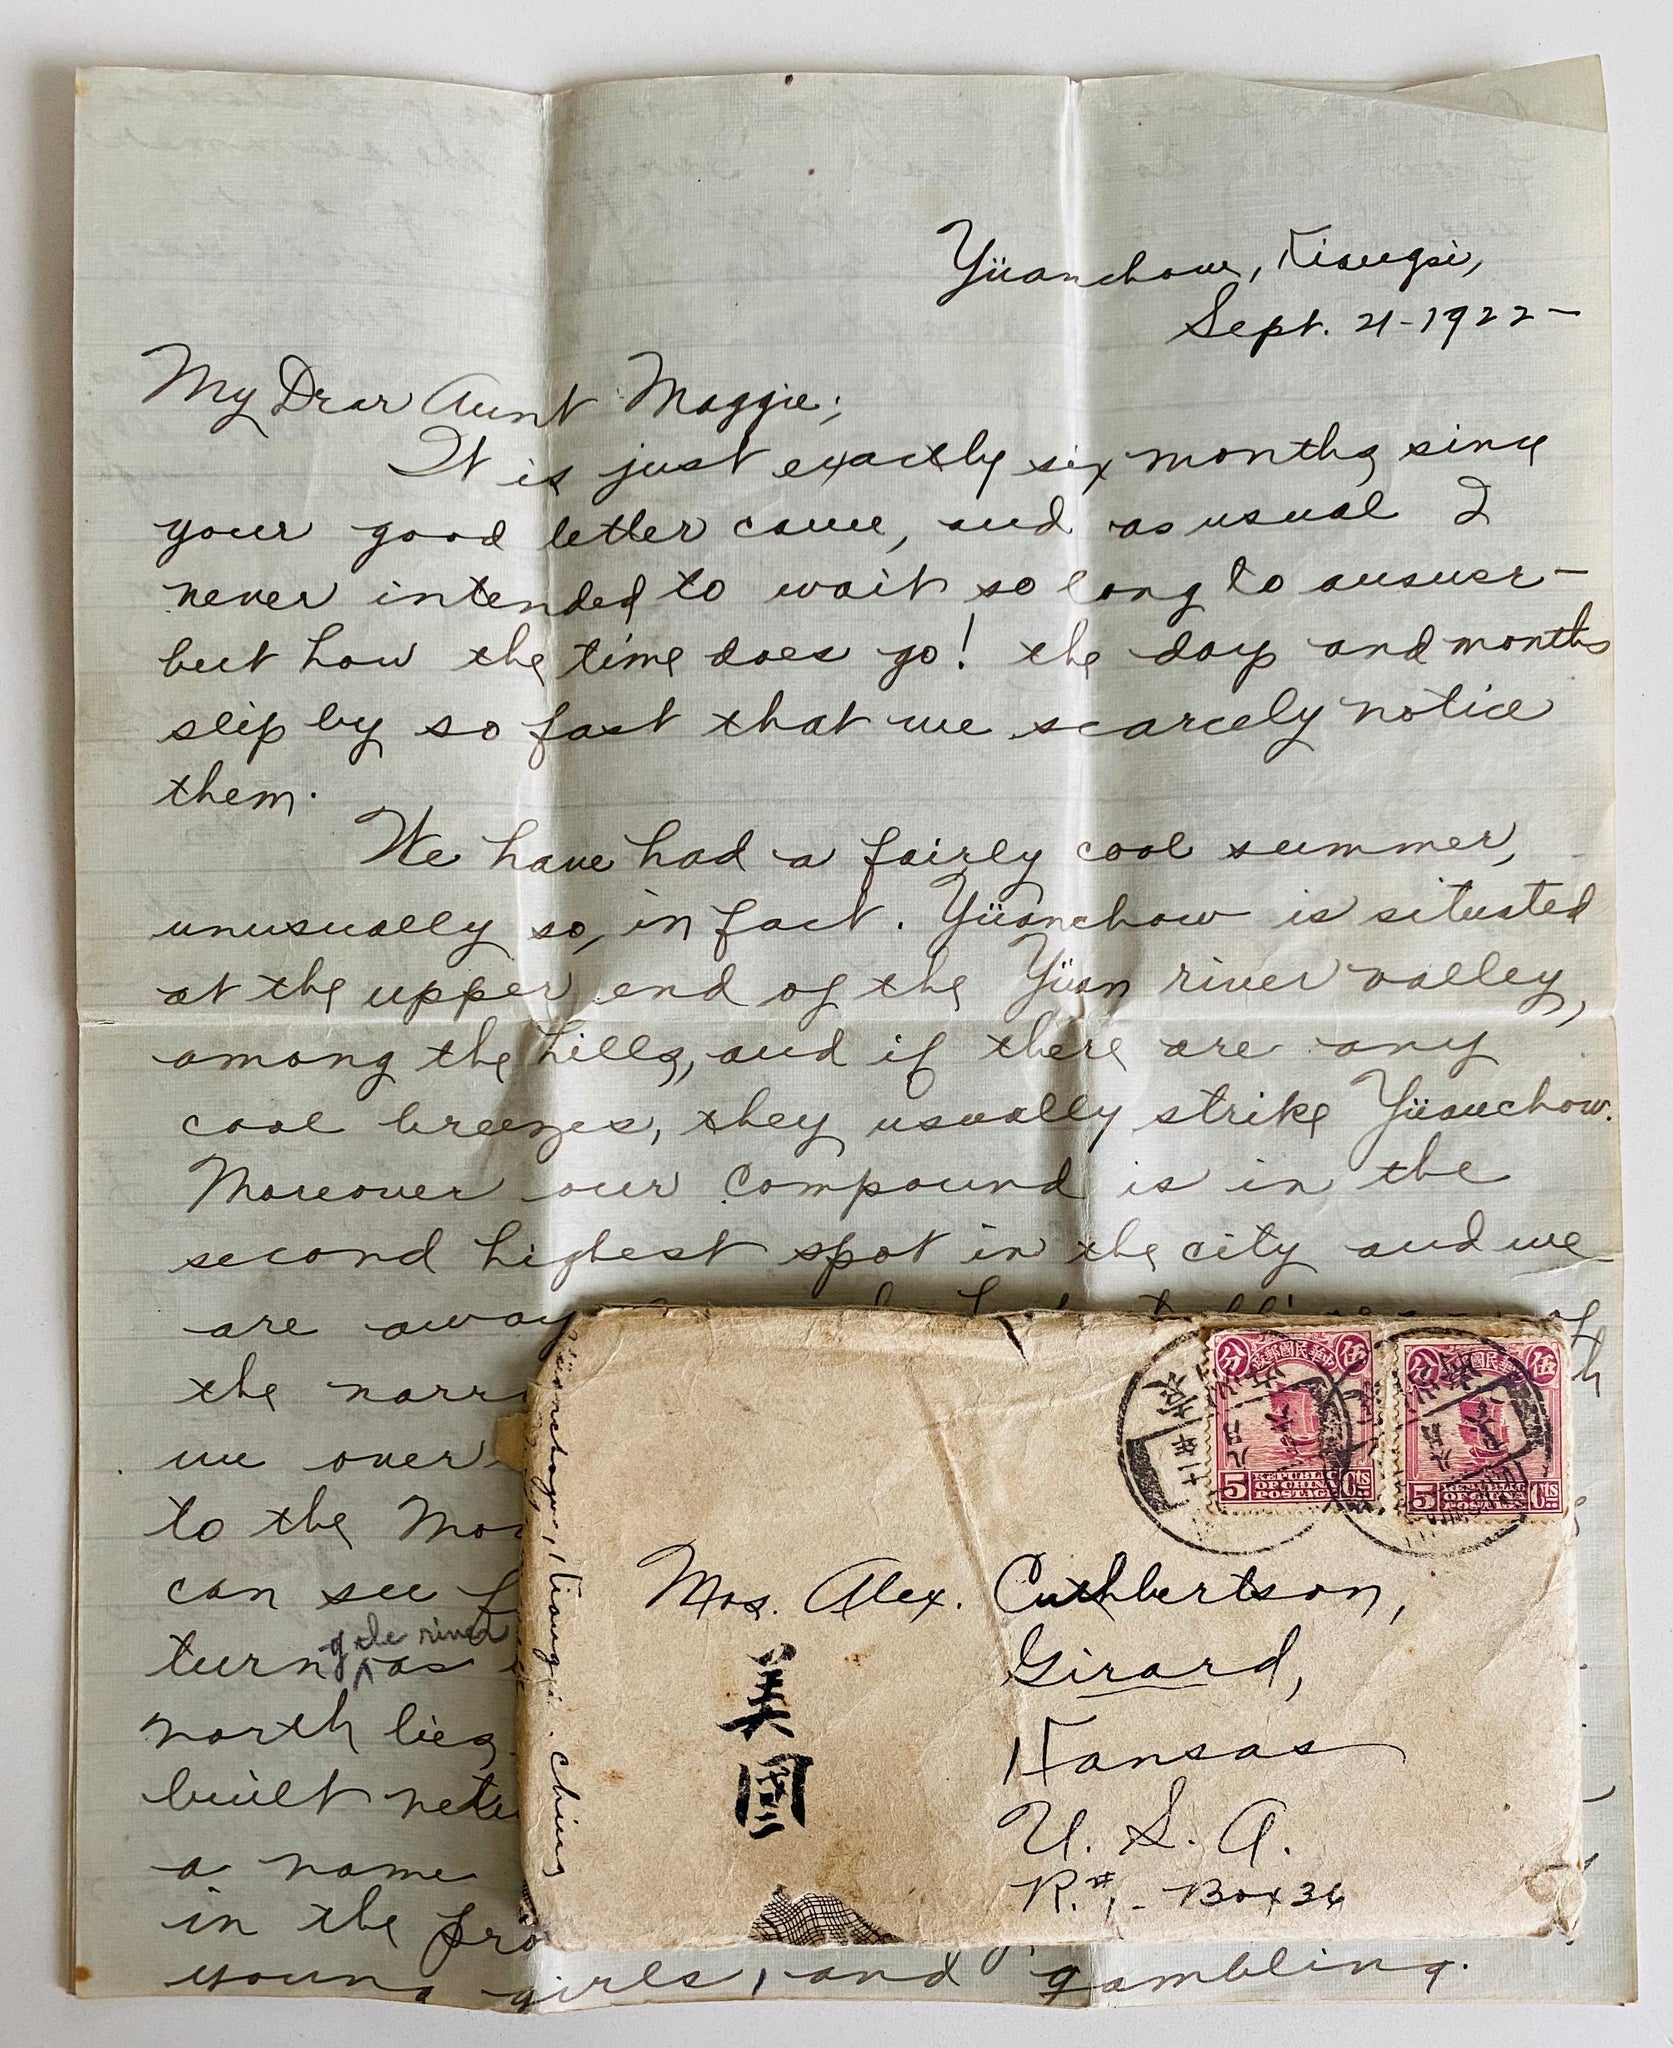 Yüanchow, Kiangsi,
Sept. 21-1922-
My Dear Aunt Maggie;
It is just exactly six months since
your good letter came, and as usual I
never intended to wait so long to answer-
but how the time does go! the days and months
slip by so fast that we scarcely notice
them.
We have had a fairly cool summer,
unusually so, in fact. Yüanchow is situated
at the upper end of the Yüan river valley,
among the hills, and if there are any
cool breezes, they usually strike Yüanchow.
Moreover our compound is in the
second highest spot in the city and we
are away
the narr
we over
to the Mo
can see f
of the river
turn as
north lies
built
a name
in the pro
young girls, and gambling.
Yüanchow, Kiangsi. China
分 中華民國郵政 伍
5 REPUBLIC OF CHINA POSTAGE Cts
分 伍
5 Cts
十一年
Mrs. Alex. Cuthbertson,
Girard,
Kansas
U. S. A.
R.#1- Box 36
美國